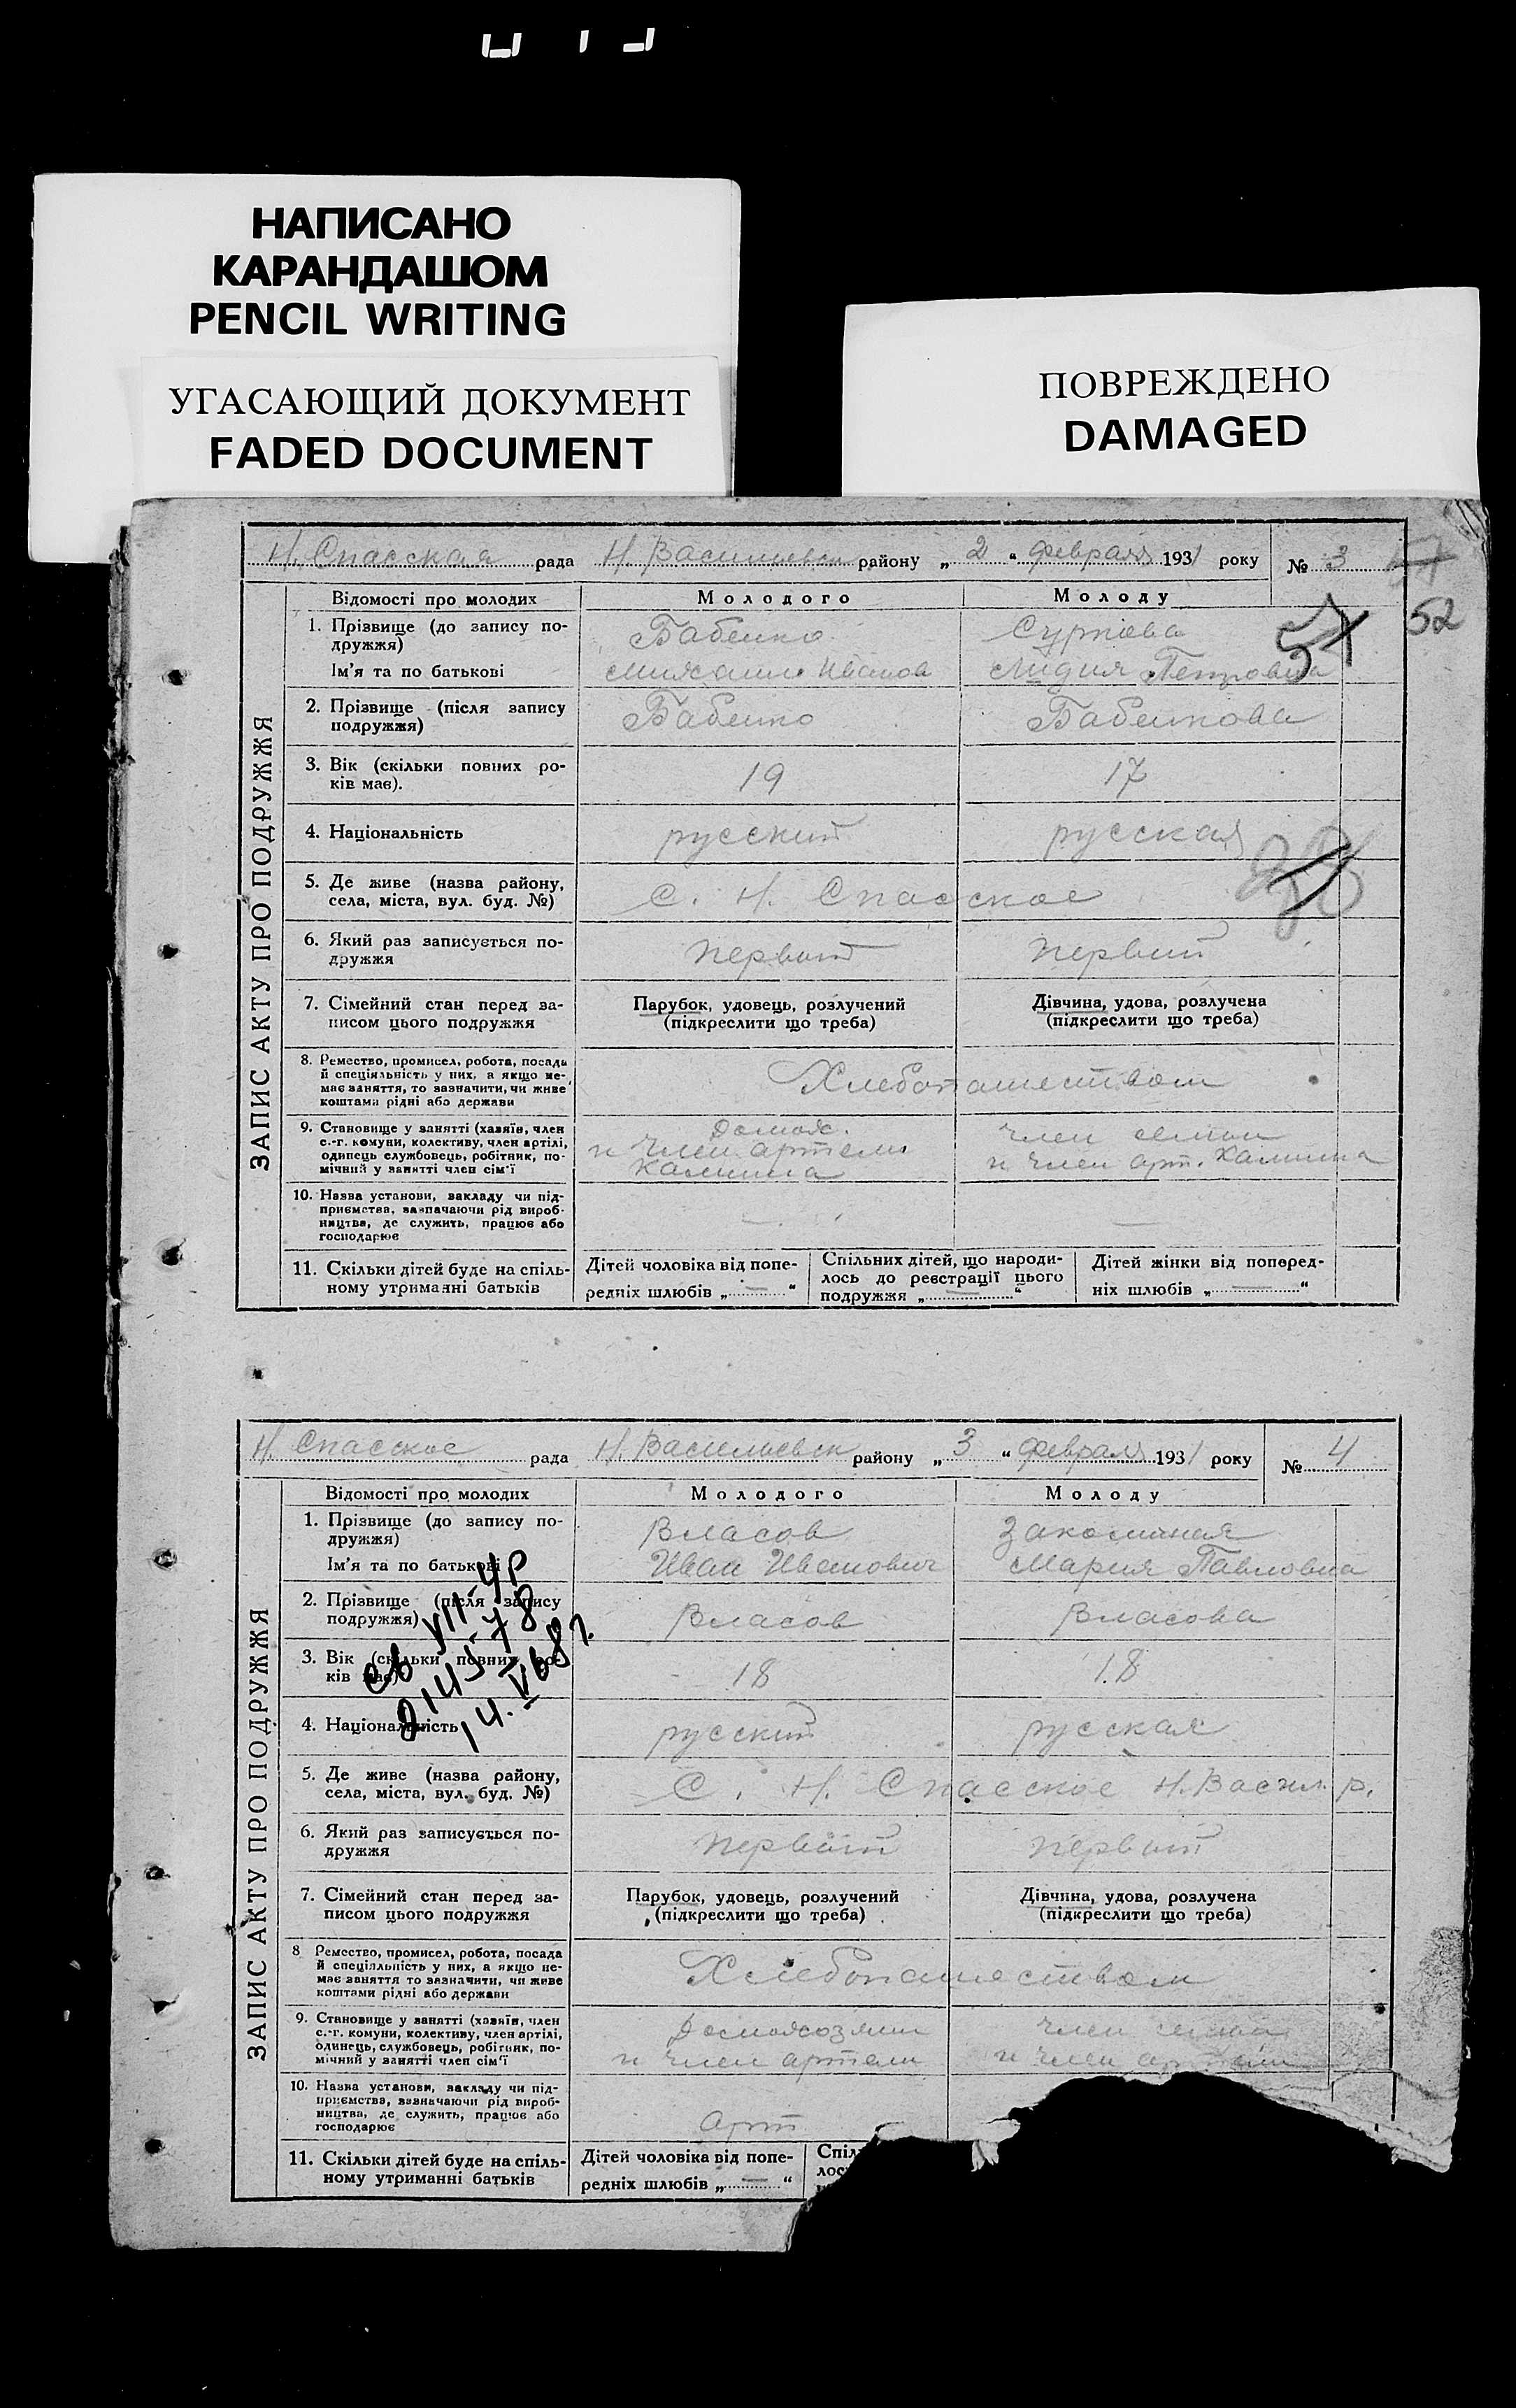 НАПИСАНО
КАРАНДАШОМ
PENCIL WRITING
УГАСАЮЩИЙ ДОКУМЕНТ
FADED DOCUMENT
ПОВРЕЖДЕНО
DAMAGED
Н. Спасская рада Н. Васильевск району „ 2 “ февраля 1931 року № 3
52
57
ЗАПИС АКТУ ПРО ПОДРУЖЖЯ
Відомості про молодих Молодого Молоду
1. Прізвище (до запису по-
дружжя) Бабенко Суркова
Ім'я та по батькові Иванов Лидия Петровна
2. Прізвище (після запису
подружжя) Бабенко Бабенкова
3. Вік (скільки повних ро-
ків має). 19 17
4. Національність русский русская
5. Де живе (назва району,
села, міста, вул. буд. №) С. Н. Спасское
6. Який раз записується по-
дружжя первый первый
7. Сімейний стан перед за-
писом цього подружжя
Парубок, удовець, розлучений
(підкреслити що треба)
Дівчина, удова, розлучена
(підкреслити що треба)
8. Ремество, промисел, робота, посада
й спеціяльність у них, а якщо не-
має заняття, то зазначити, чи живе
коштами рідні або держави
Хлебопашеством
9. Становище у занятті (хазяїн, член
с.-г. комуни, колективу, член артілі,
одинець службовець, робітник, по-
мічний у занятті член сім'ї
Домохоз.
и член артели
Калинина
член семьи
и член арт. Калинина
10. Назва установи, закладу чи під-
приємства, зазначаючи рід вироб-
ництва, де служить, працює або
господарює
11. Скільки дітей буде на спіль-
ному утриманні батьків
Дітей чоловіка від попе-
редніх шлюбів „ — “
Спільних дітей, що народи-
лось до реєстрації цього
подружжя „ — “
Дітей жінки від поперед-
ніх шлюбів „ — “
Н. Спасское рада Н. Васильевск району „ 3 “ февраля 1931 року № 4
ЗАПИС АКТУ ПРО ПОДРУЖЖЯ
Відомості про молодих Молодого Молоду
1. Прізвище (до запису по-
дружжя) Власов
Ім'я та по батькові Иван Иванович Мария Павловна
2. Прізвище (після запису
подружжя) Власов Власова
3. Вік (скільки повних ро-
ків має). 18 18
4. Національність русский русская
5. Де живе (назва району,
села, міста, вул. буд. №) С. Н. Спасское Н. Васил. р.
6. Який раз записується по-
дружжя первый первый
7. Сімейний стан перед за-
писом цього подружжя
Парубок, удовець, розлучений
(підкреслити що треба)
Дівчина, удова, розлучена
(підкреслити що треба)
8 Ремество, промисел, робота, посада
й спеціяльність у них, а якщо не-
має заняття то зазначити, чи живе
коштами рідні або держави
Хлебопашеством
9. Становище у занятті (хазяїн, член
с.-г. комуни, колективу, член артілі,
одинець, службовець, робітник, по-
мічний у занятті член сім'ї
Домохозяин
и член артели
член семьи
и член артели
10. Назва установи, закладу чи під-
приємства, зазначаючи рід вироб-
ництва, де служить, працює або
господарює
арт
11. Скільки дітей буде на спіль-
ному утриманні батьків
Дітей чоловіка від попе-
редніх шлюбів „ — “
Спіл
лос